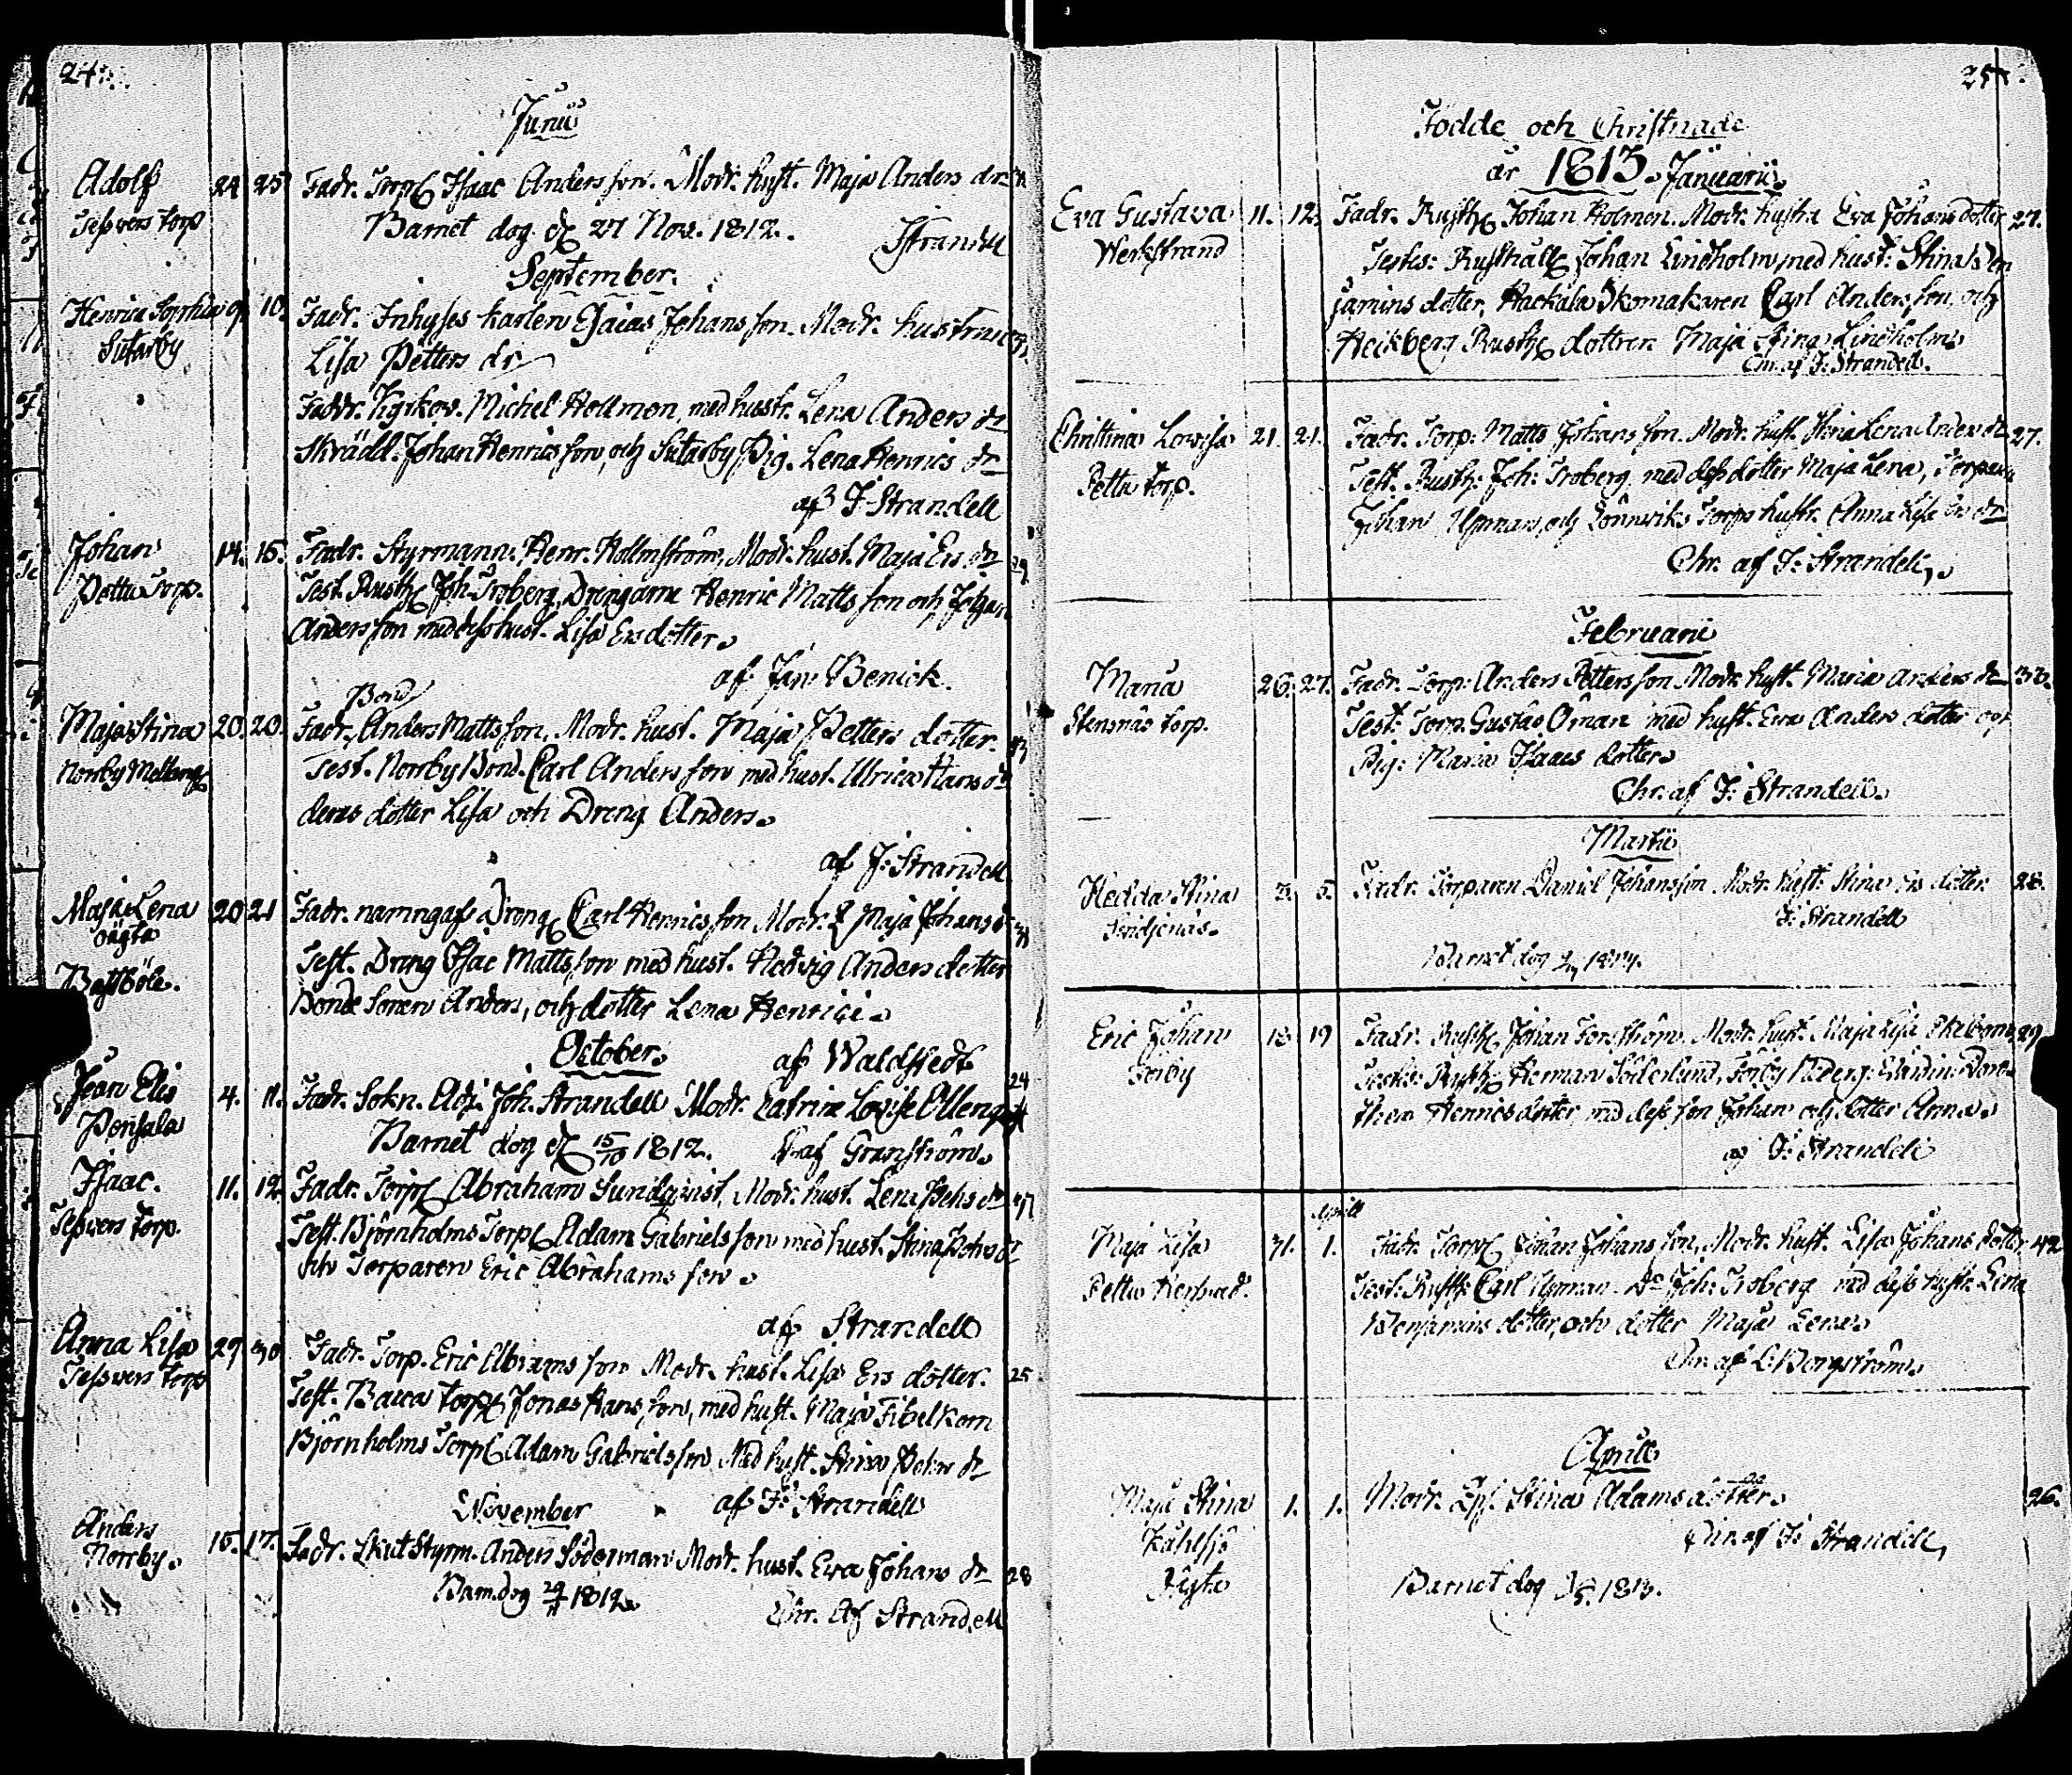 24.
Junii
Adolf 24 25 Fadr. Torp. Isaac Andersson. Modr. hust. Maja Anders dr
Tessvers torp Barnet dog d. 27 Nov. 1812. Strandell
September.
Henrica Sophia 9. 10. Fadr. Inhyses karlen Esaias Johansson. Modr. hustrun
Sutarby Lisa Petters dr
Faddr. Kyrkov. Michel Hollmen, med hustr. Lena Anders dr
Skrädd. Johan Henricsson, och Sutarby Pig. Lena Henrics dr
af J. Strandell
Johan 14. 15. Fadr. Styrmann. Henr. Hollmström, Modr. hust. Maja Ers dr 29
Pettu Torp. Test. Rusth. Joh. Troberg, Drengarne Henric Mattsson och Johan
Andersson med dess hust. Lisa Ersdotter.
af Jan Benick.
Bond
Maja Stina 20. 20. Fadr. Anders Mattsson, Modr. hust. Maja Petters dotter.
Norrby Mellang. Test. Norrby Bond. Carl Andersson med hust. Ulrica Hans dr
deras dotter Lisa och Dreng Anders.
af J. Strandell
Maja Lena 20 21 Fadr. namngafs Dreng Carl Henricsson, Modr. Maja Johans dr
oägta Test. Dreng Isac Mattsson med hust. Hedvig Anders dotter
Bastböle. Bonde Sonen Anders, och dotter Lena Henrici.
October. af Waldstedt
Jean Elis 4. 11. Fadr. Sokn. Adj. Joh. Strandell Modr. Catrina Lovisa Olleng 24
Pensala Barnet dog d. 15/10 1812. af Granström.
Isaac. 11. 12 Fadr. Torp. Abraham Sundqvist, Modr. hust. Lena Pehrs dr
Tessvers torp. Test. Björnholms Torp. Adam Gabrielsson med hust. Stina Pehrs dr
och Torparen Eric Abrahamsson.
af Strandell
Anna Lisa 29 30 Fadr. Torp. Eric Abramsson Modr. hust. Lisa Ers dotter. 25
Tessvers torp Test. Bacca torp. Jonas Hansson, med hust. Maja Fibelkorn
Björnholms Torp. Adam Gabrielsson Med hust. Stina Pehrs dr
November af J. Strandell
Anders 15. 17. Fadr. Skut Styrm. Anders Söderman Modr. hust. Eva Johans dr 28
Norrby. Barn. dog 29/11 1812. Chr. Af Strandell
25
Födde och Christnade
år 1813. Januarii.
Eva Gustava 11. 12. Fadr. Rusth. Johan Holmen. Modr. hustru Eva Johans dotter 27.
Werkstrand Testes: Rusthåll. Johan Lindholm, med hust: Stina Ben
jamins dotter, Hackala Skomakaren Carl Andersson, och
Heikberg Rusth. dottren Maja Stina Lindholm
Chr. af J. Strandell.
Christina Lovisa 21. 21. Fadr. Torp. Matts Johansson. Modr. hust. Stina Lena Anders dr 27.
Pettu torp. Test. Rusth: Joh: Troberg med dess dotter Maja Lena, Torparen
Johan Upman, och Sönnviks Torps hustr. Anna Lisa Ers dr
Chr. af J. Strandell.
Februarii
Maria 26. 27. Fadr. Torp. Anders Pettersson Modr. hust. Maria Anders dr 33.
Stensnäs torp. Test: Torp. Gustav Öman med hust. Eva Anders dotter och
Pig: Maria Isaacs dotter.
Chr. af J. Strandell.
Martii
Hedda Stina 3. 5. Fadr. Torparen Daniel Johansson Modr. hust. Stina Ers dotter. 28.
J. Strandell
Barnet dog
Eric Johan 18 19 Fadr. Rusth. Johan Forsström. Modr. hust. Maja Lisa Ekebom 29
Förby Testes: Rusth. Herman Söderlund, Förby
thea Henricsdotter, med dess son Johan och dotter Anna.
af J. Strandell
Aprill
Maja Lisa 31. 1. Fadr. Torp. Johan Johansson, Modr. hust. Lisa Johans dotter. 42
Pettu Test. Rusth. Carl Upman. Do Joh: Troberg med dess hustr. Lena
Benjamins dotter, och dotter Maja Lena.
Chr. af Borgström.
Aprill
Maja Stina 1. 1. Modr. Stina Adams dotter. 26.
Kählsjö Chr. af J. Strandell,
Barnet dog 1813.